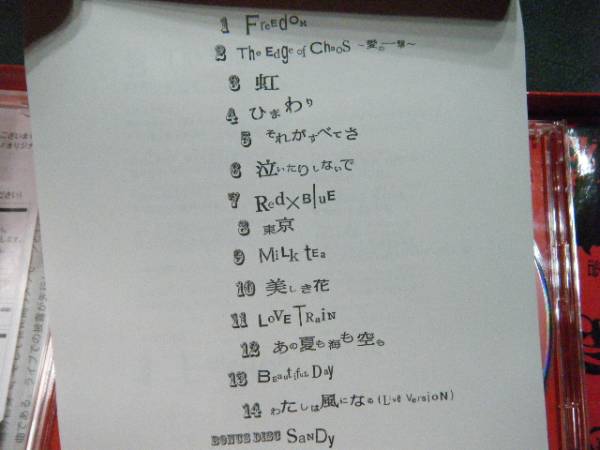 1 FreEdOM
2 The EdgE of ChaoS ～愛の一撃～
3 虹
4 ひまわり
5 それがすべてさ
6 泣いたりしないで
7 Red×BluE
8 東京
9 MiLk tEa
10 美しき花
11 LoVE TRaiN
12 あの夏も海も空も
13 BEautifuL Day
14 わたしは風になる (LivE VersioN)
BONUS DISC SaNDy